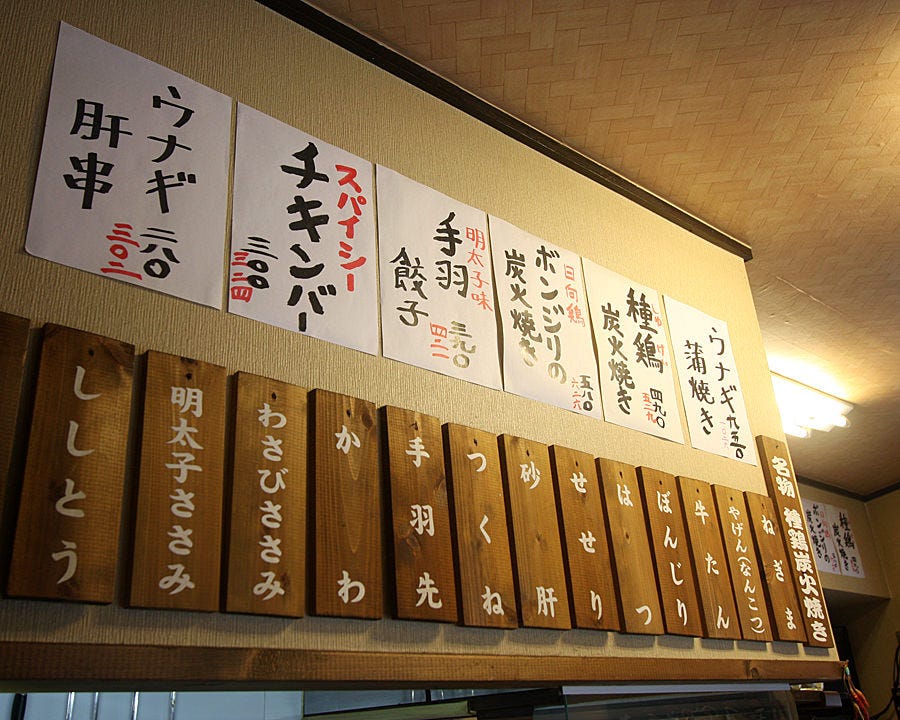 ウナギ 九五〇
蒲焼き 一〇二六
種鶏 四九〇
炭火焼き 五二九
日向鶏
ボンジリの 五八〇
炭火焼き 六二六
明太子味
手羽 三九〇
餃子 四二一
スパイシー
チキンバー
三〇〇
三二四
ウナギ 二八〇
肝串 三〇二
名物 種鶏炭火焼き
ねぎま
やげん(なんこつ)
牛たん
ぼんじり
はつ
せせり
砂肝
つくね
手羽先
かわ
わさびささみ
明太子ささみ
ししとう
種鶏
炭火焼き
ボンジリの
炭火焼き